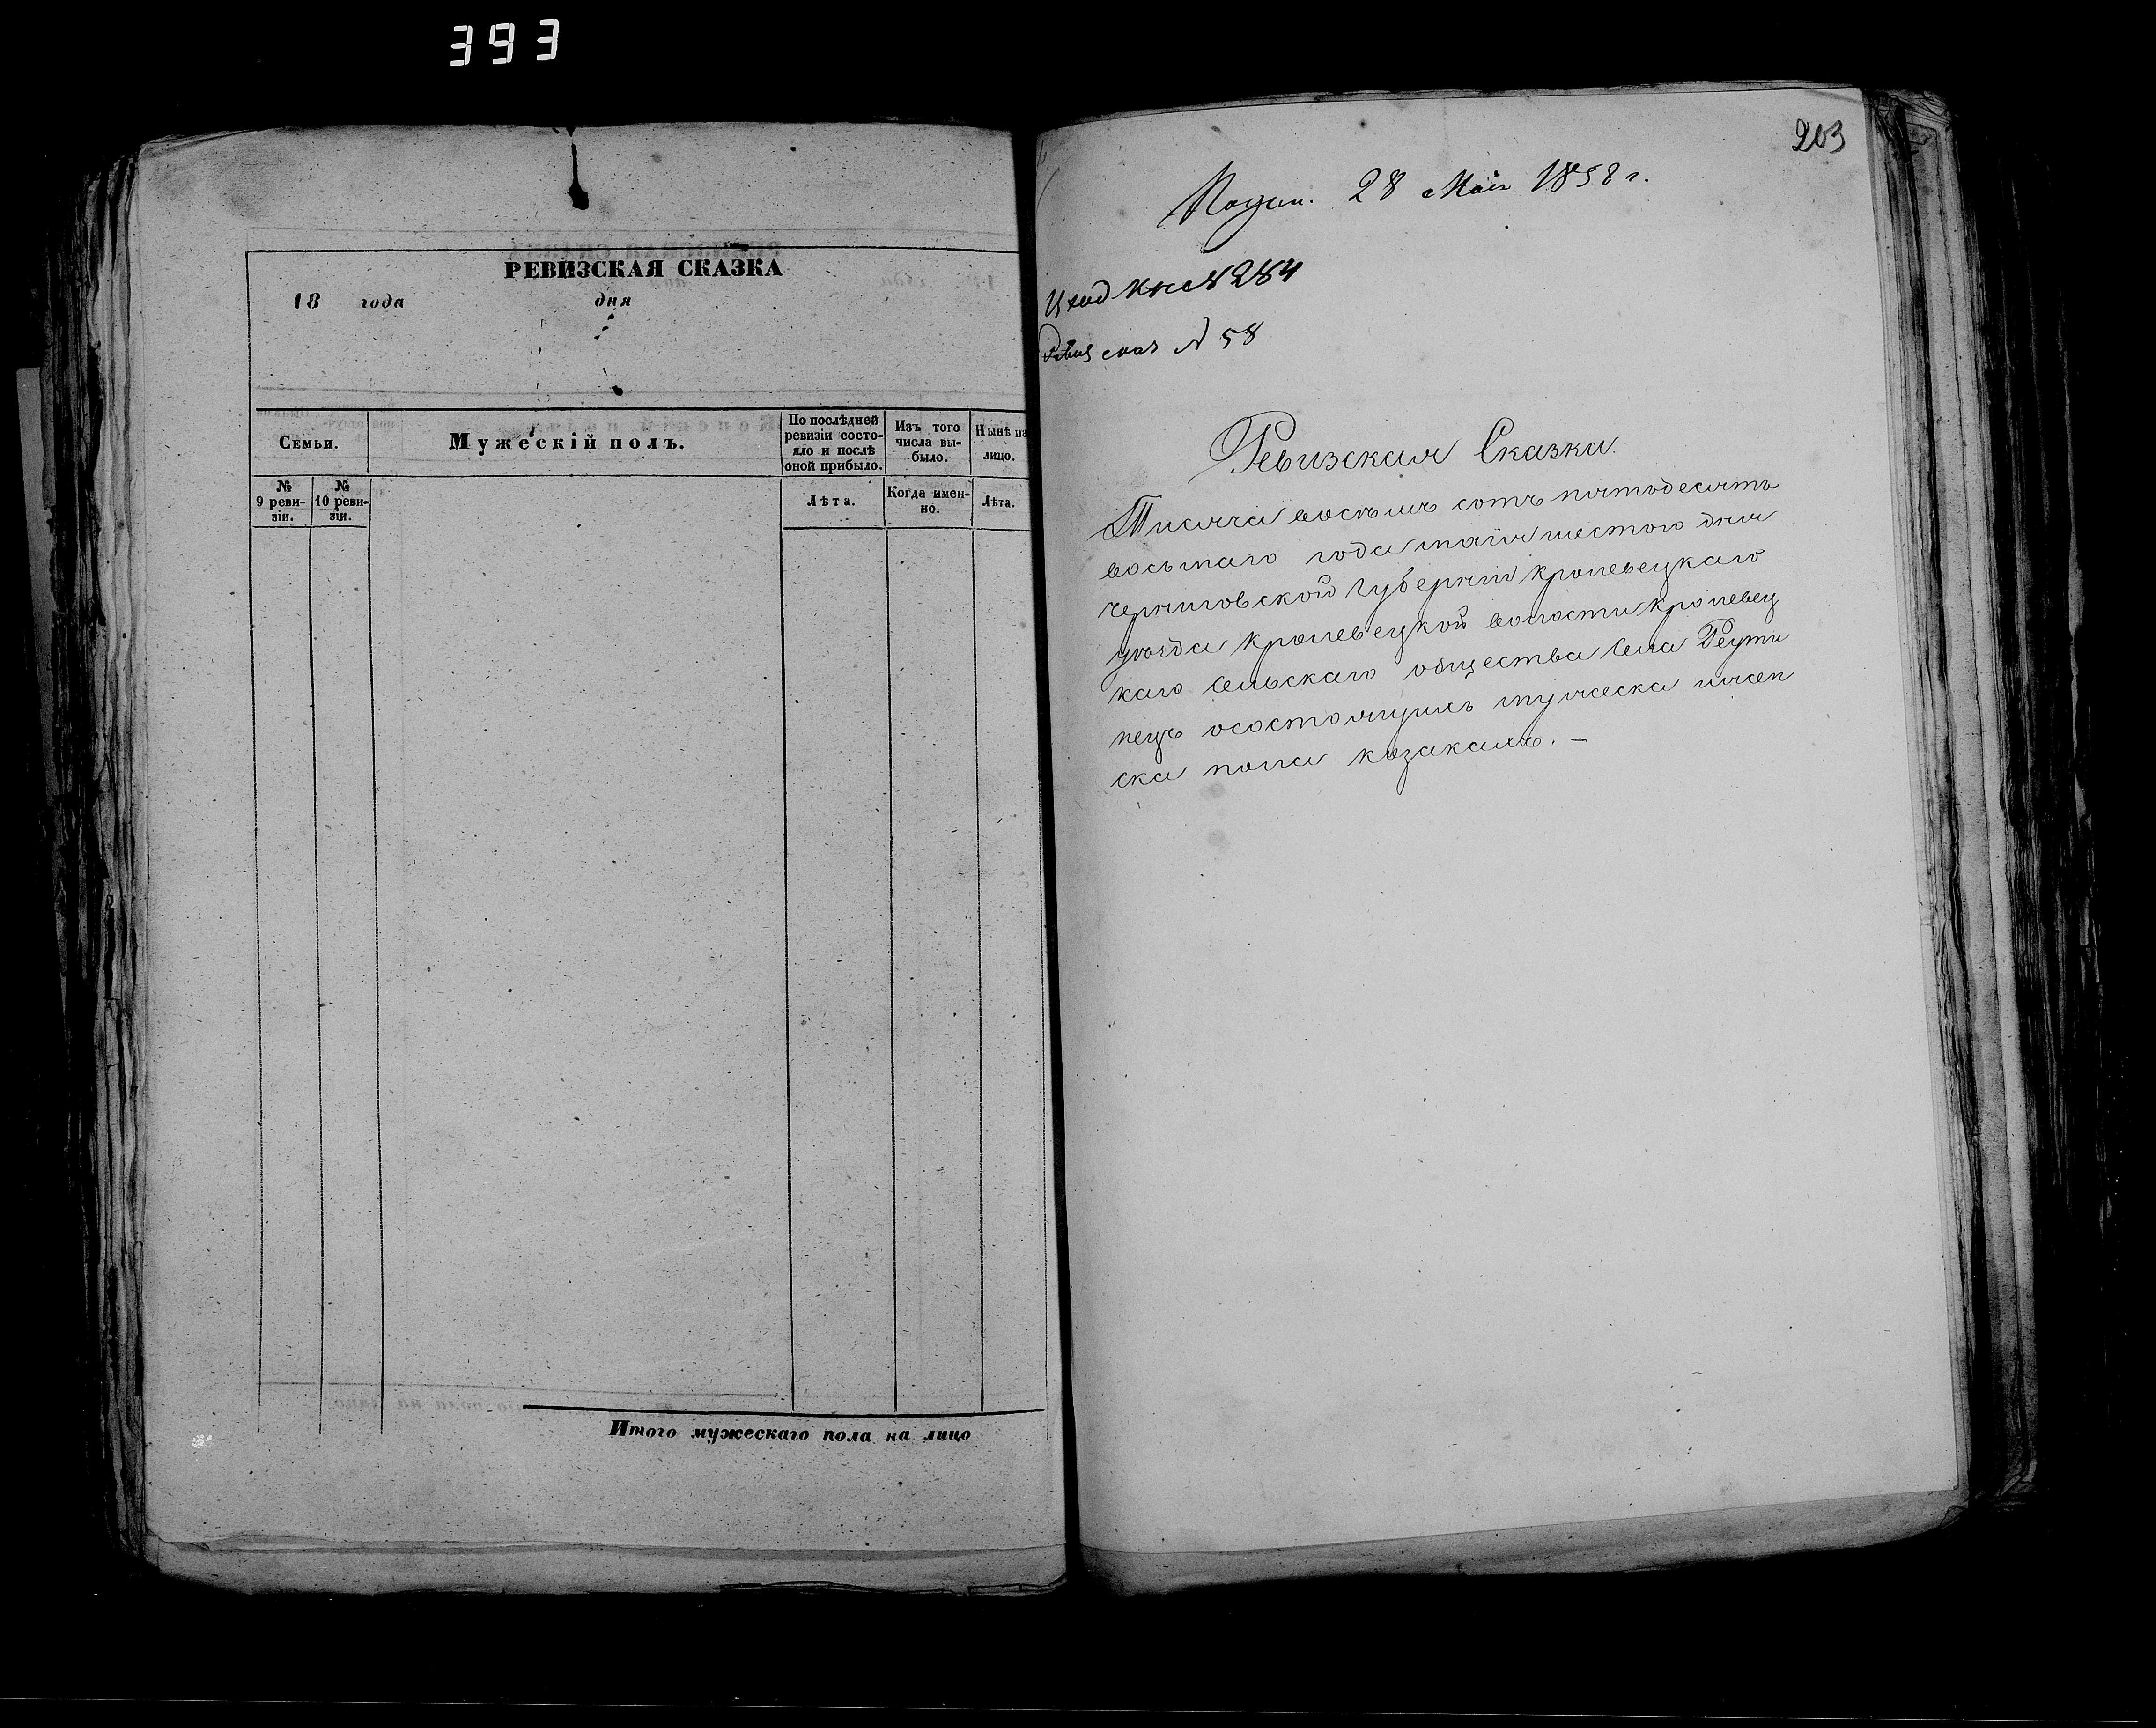 393
РЕВИЗСКАЯ СКАЗКА
18 года дня
Семьи.
Мужескій полъ.
По послѣдней ревизіи состо-
яло и послѣ
оной прибыло.
Изъ того
числа вы-
было.
Нынѣ на
лицо.
№
9 реви-
зіи.
№
10 реви-
зіи.
Лѣта.
Когда имен-
но.
Лѣта.
Итого мужескаго пола на лицо
203
28 Маія 1858 г.
284
№ 58
Ревизская Сказка
Тисяча восѣмъ сотъ пятодесятъ
восьмаго года маія шестого дня
черниговской губерніи кролевецкаго
уѣзда кролевецкой волости кролевец
каго сельскаго общества села Реути
нецъ осостоящихъ мужеска ижен
ска пола козакахъ. —